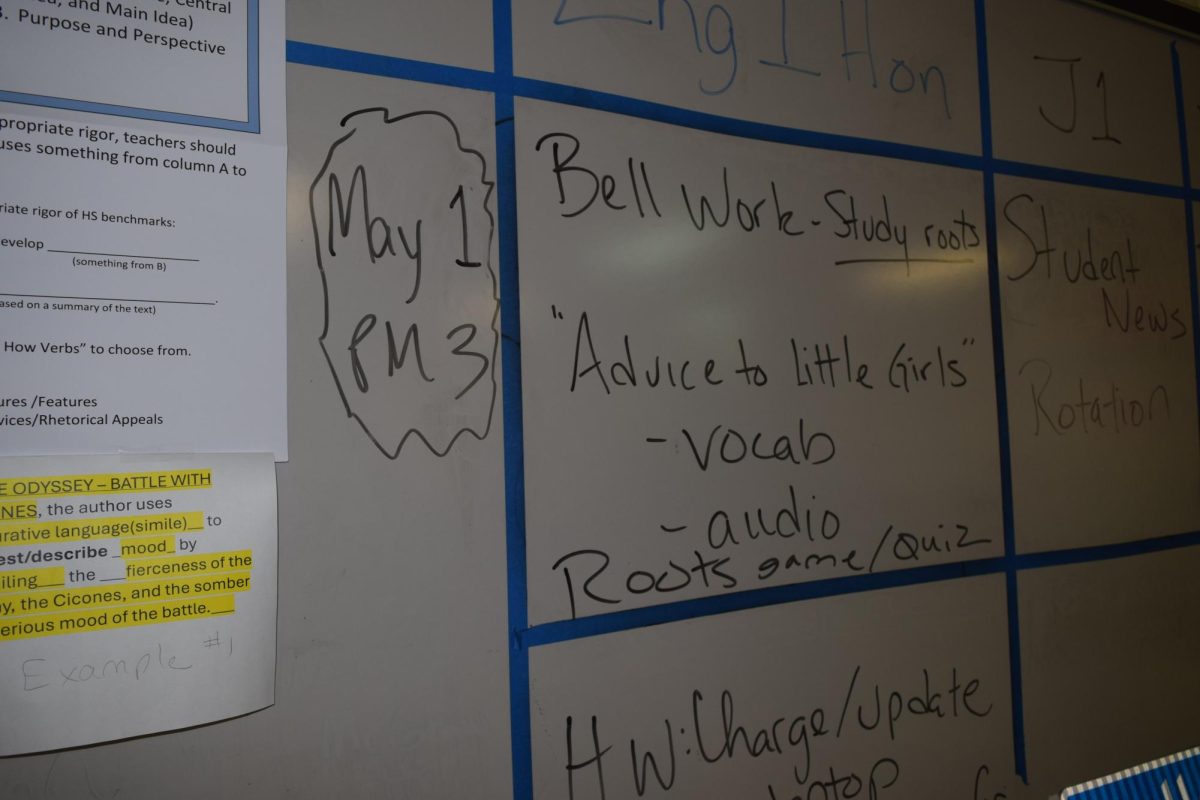 Central
and Main Idea)
Purpose and Perspective
propriate rigor, teachers should
uses something from column A to
riate rigor of HS benchmarks:
evelop
(something from B)
ased on a summary of the text)
How Verbs” to choose from.
ures /Features
vices/Rhetorical Appeals
E ODYSSEY – BATTLE WITH
NES, the author uses
urative language(simile)__ to
est/describe _mood_ by
iling___ the ___fierceness of the
y, the Cicones, and the somber
erious mood of the battle.___
Example #1
May 1
PM 3
Eng 1 Hon
Bell Work - Study roots
"Advice to Little Girls"
- vocab
- audio
Roots game/Quiz
HW: Charge/update
J1
Student
News
Rotation